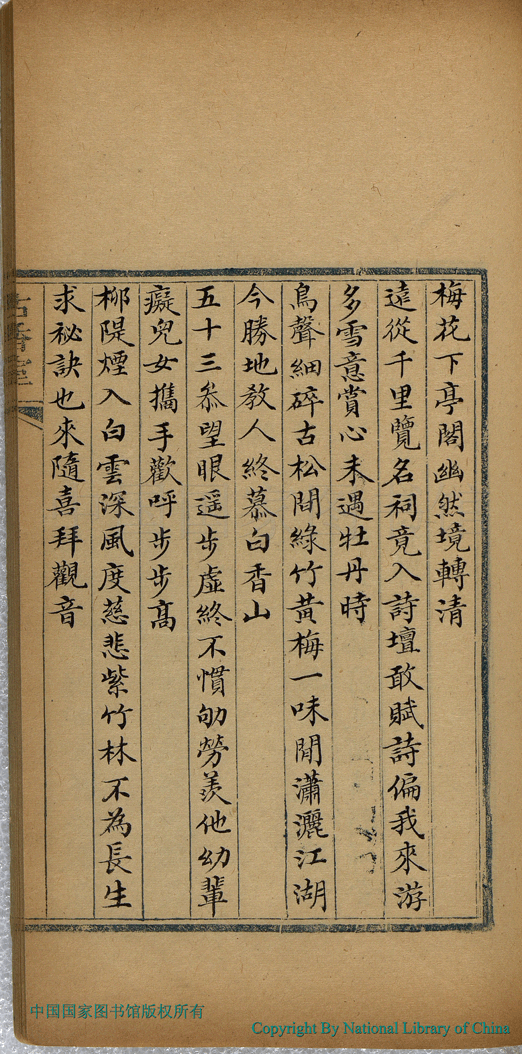 梅花下亭閣幽然境轉清
遠從千里覽名祠竟入詩壇敢賦詩偏我來游
多雪意賞心未遇牡丹時
鳥聲細碎古松間綠竹黃梅一味閒瀟灑江湖
今勝地教人終慕白香山
五十三叅望眼遥步虛終不慣劬勞羨他幼輩
癡兒女攜手歡呼步步高
柳隄煙入白雲深風度慈悲紫竹林不為長生
求祕訣也來隨喜拜觀音
中国国家图书馆版权所有
Copyright By National Library of China